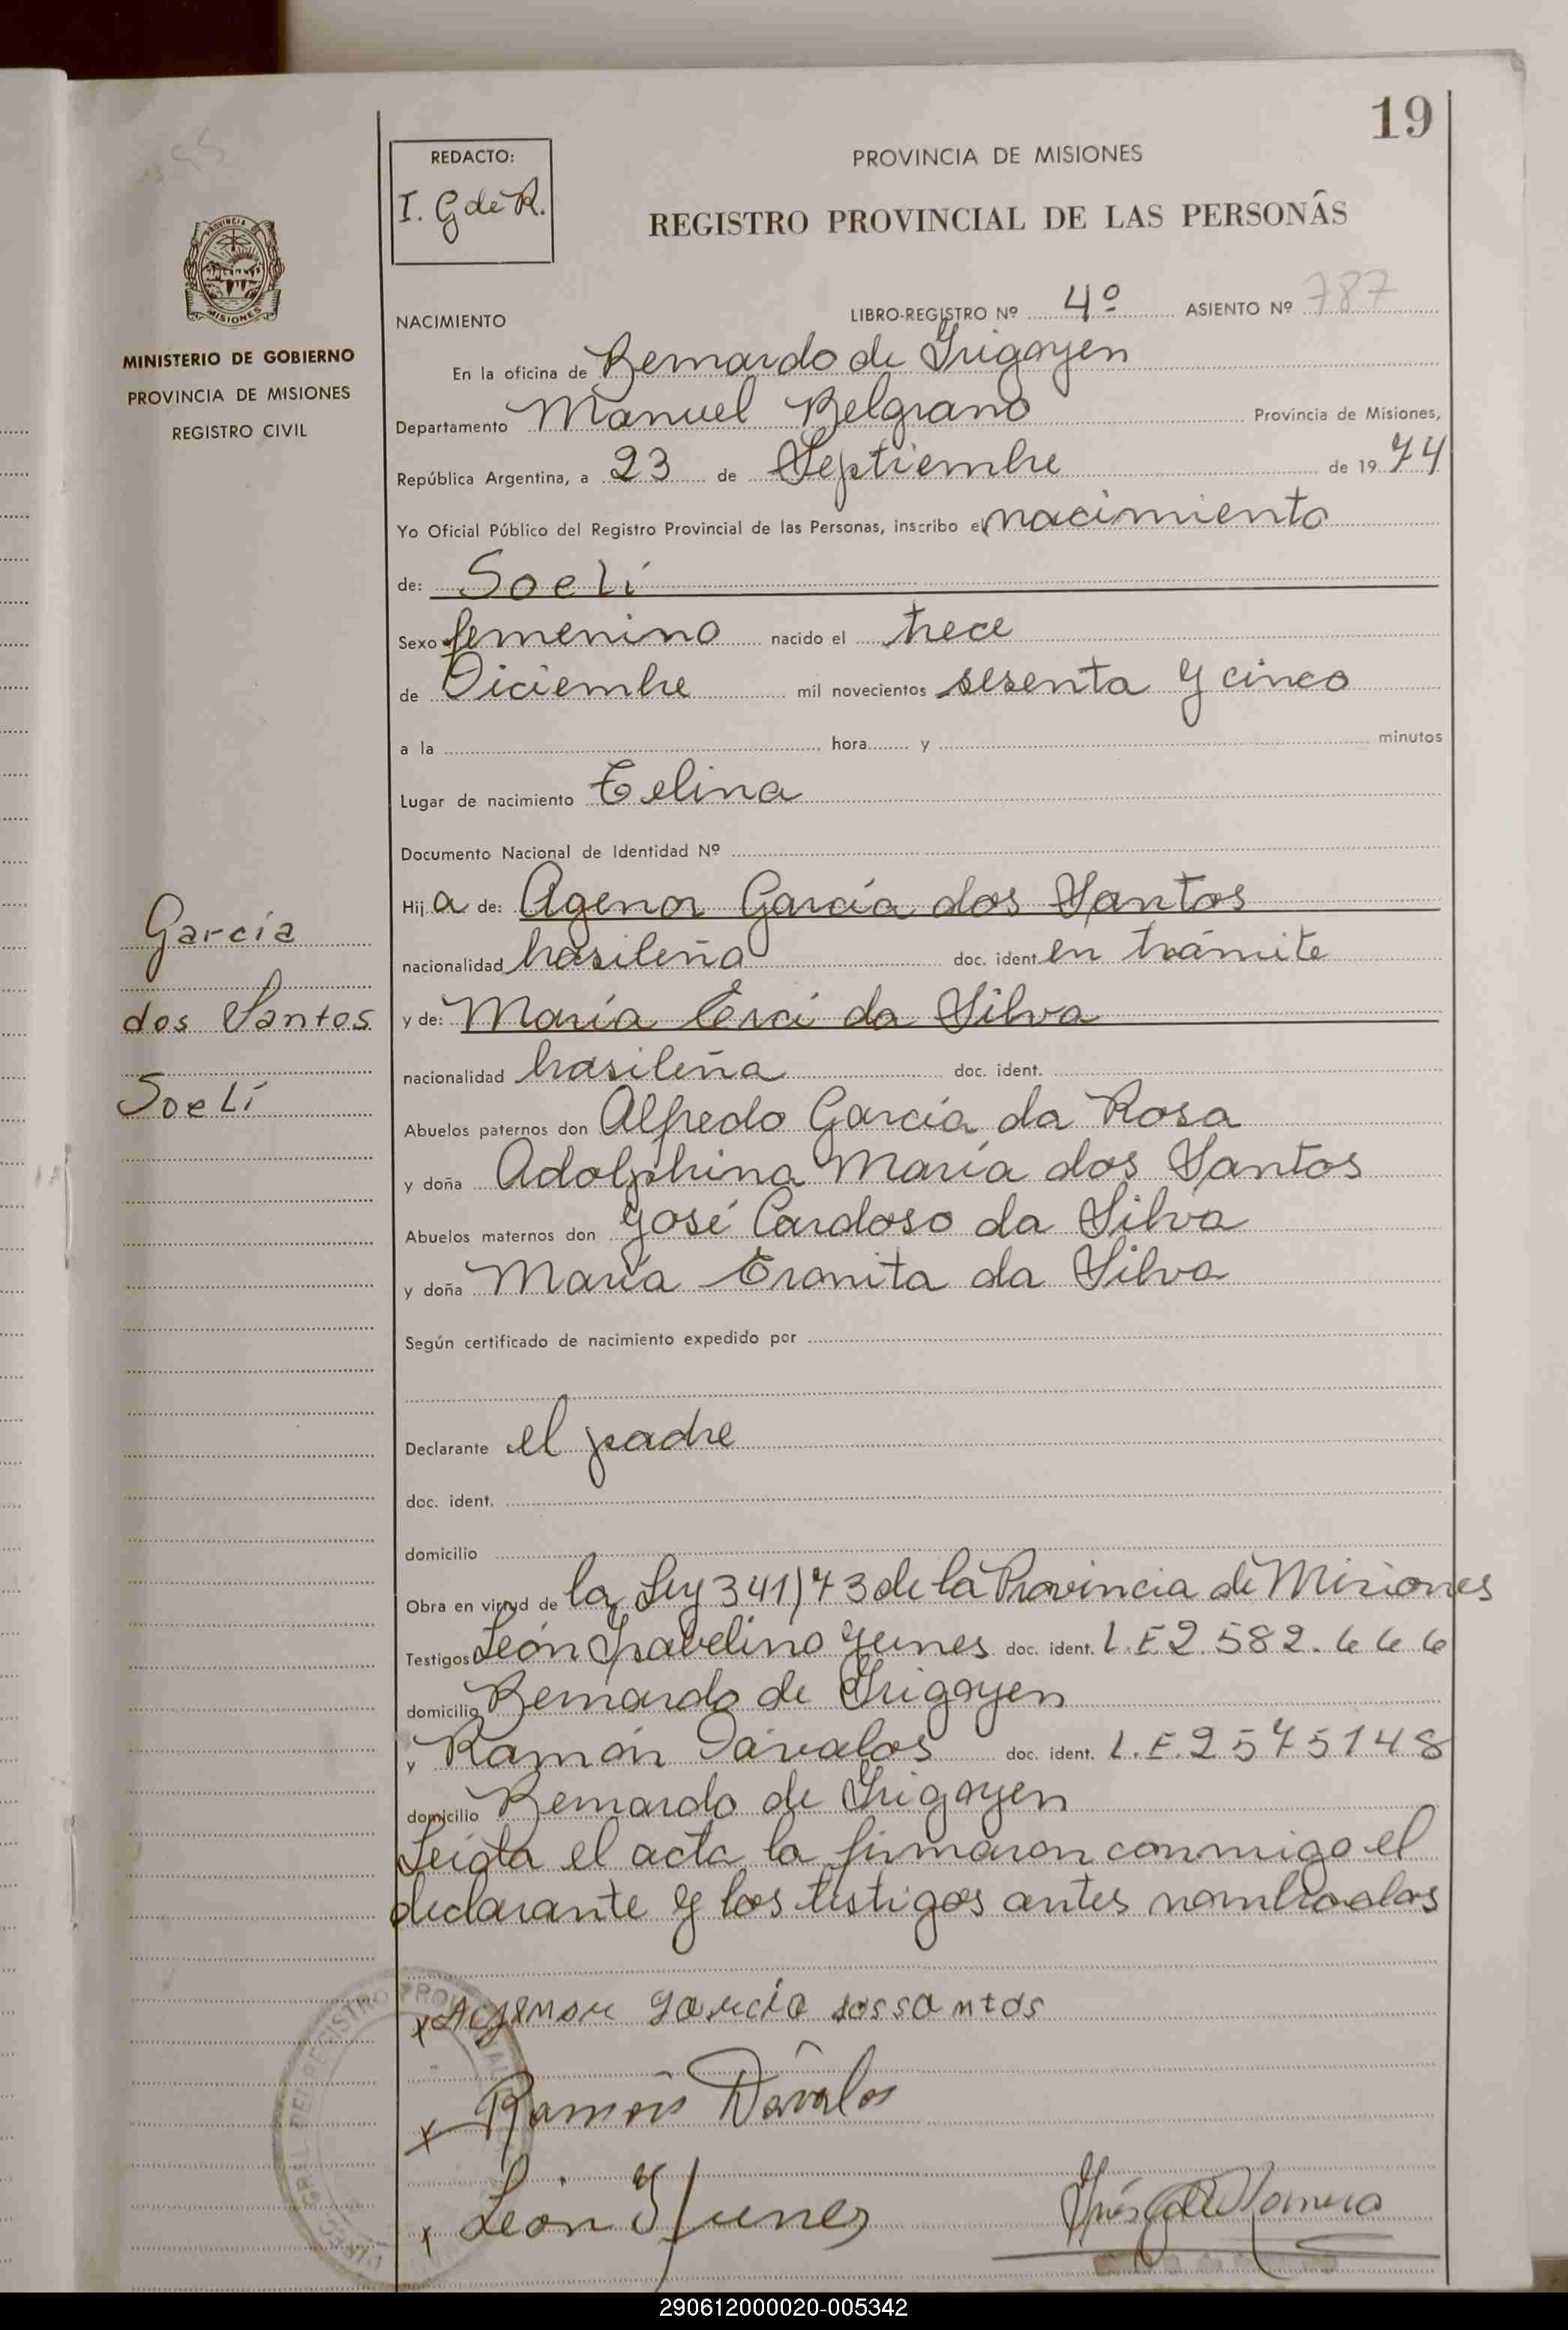 19
REDACTO:
I. G de R.
PROVINCIA DE MISIONES
REGISTRO PROVINCIAL DE LAS PERSONAS
MINISTERIO DE GOBIERNO
PROVINCIA DE MISIONES
REGISTRO CIVIL
NACIMIENTO LIBRO-REGISTRO Nº 4º ASIENTO Nº 787
En la oficina de Bernardo de Irigoyen
Departamento Manuel Belgrano Provincia de Misiones,
República Argentina, a 23 de Septiembre de 19 74
Yo Oficial Público del Registro Provincial de las Personas, inscribo el nacimiento
de: Soelí
Sexo femenino nacido el trece
de Diciembre mil novecientos sesenta y cinco
a la hora y minutos
Lugar de nacimiento
Documento Nacional de Identidad Nº
Hij a de: Agenor García dos Santos
nacionalidad brasileña doc. ident. en trámite
y de: María Erci da Silva
nacionalidad brasileña doc. ident.
Abuelos paternos don Alfredo García da Rosa
y doña Adolphina María dos Santos
Abuelos maternos don José Cardoso da Silva
y doña María Eronita da Silva
Según certificado de nacimiento expedido por
Declarante el padre
doc. ident.
domicilio
Obra en virtud de la Ley 341/73 de la Provincia de Misiones
Testigos León Yunes doc. ident. L.E 2.582.666
domicilio Bernardo de Irigoyen
y Ramón Dávalos doc. ident. L.E. 2575148
domicilio Bernardo de Irigoyen
Leida el acta la firmaron conmigo el
declarante y los testigos antes nombrados
García
dos Santos
Soelí
x Agenor García dossantos
x Ramón Dávalos
x León Yunes
Inés G de Romero
290612000020-005342